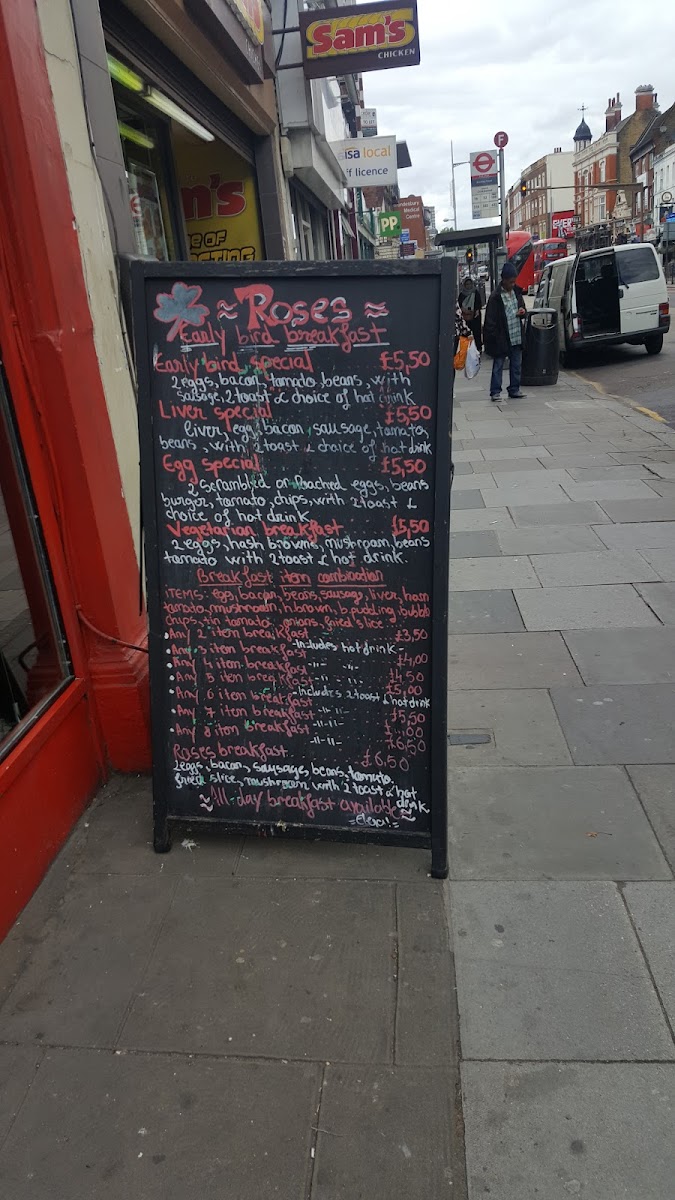 Sam's
CHICKEN
isa local
ff licence
PP
F
m's
E OF
Roses
Early bird breakfast
Early bird special £5,50
2 eggs, bacon, tomato, beans, with
sausage, 2 toast & choice of hot drink
Liver special £5,50
liver, egg, bacon, sausage, tomato,
beans, with 2 toast & choice of hot drink
Egg special £5,50
2 scrambled or poached eggs, beans
burger, tomato, chips, with 2 toast &
choice of hot drink
Vegetarian breakfast £5,50
2 eggs, hash browns, mushroom, beans
tomato with 2 toast & hot drink.
Breakfast item combination
ITEMS: egg, bacon, beans, sausage, liver, ham
tomato, mushroom, h.brown, b.pudding, bubble
chips, tin tomato, onions, fried slice
Any 2 item breakfast £3,50
Any 3 item breakfast -Includes hot drink- £4,00
Any 4 item breakfast -11- -11- £4,50
Any 5 item breakfast -11- -11- £5,00
Any 6 item breakfast -Includes 2 toast & hot drink £5,50
Any 7 item breakfast -11-11-
Any 8 item breakfast -11-11- £6,50
Roses breakfast £6,50
2 eggs, bacon, sausage, beans, tomato,
fried slice, mushroom with 2 toast & hot
drink
All day breakfast available